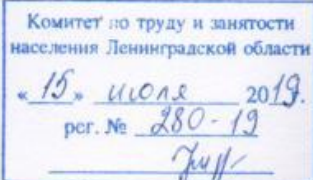 Комитет по труду и занятости
населения Ленинградской области
«15» июля 2019.
рег. № 280-19